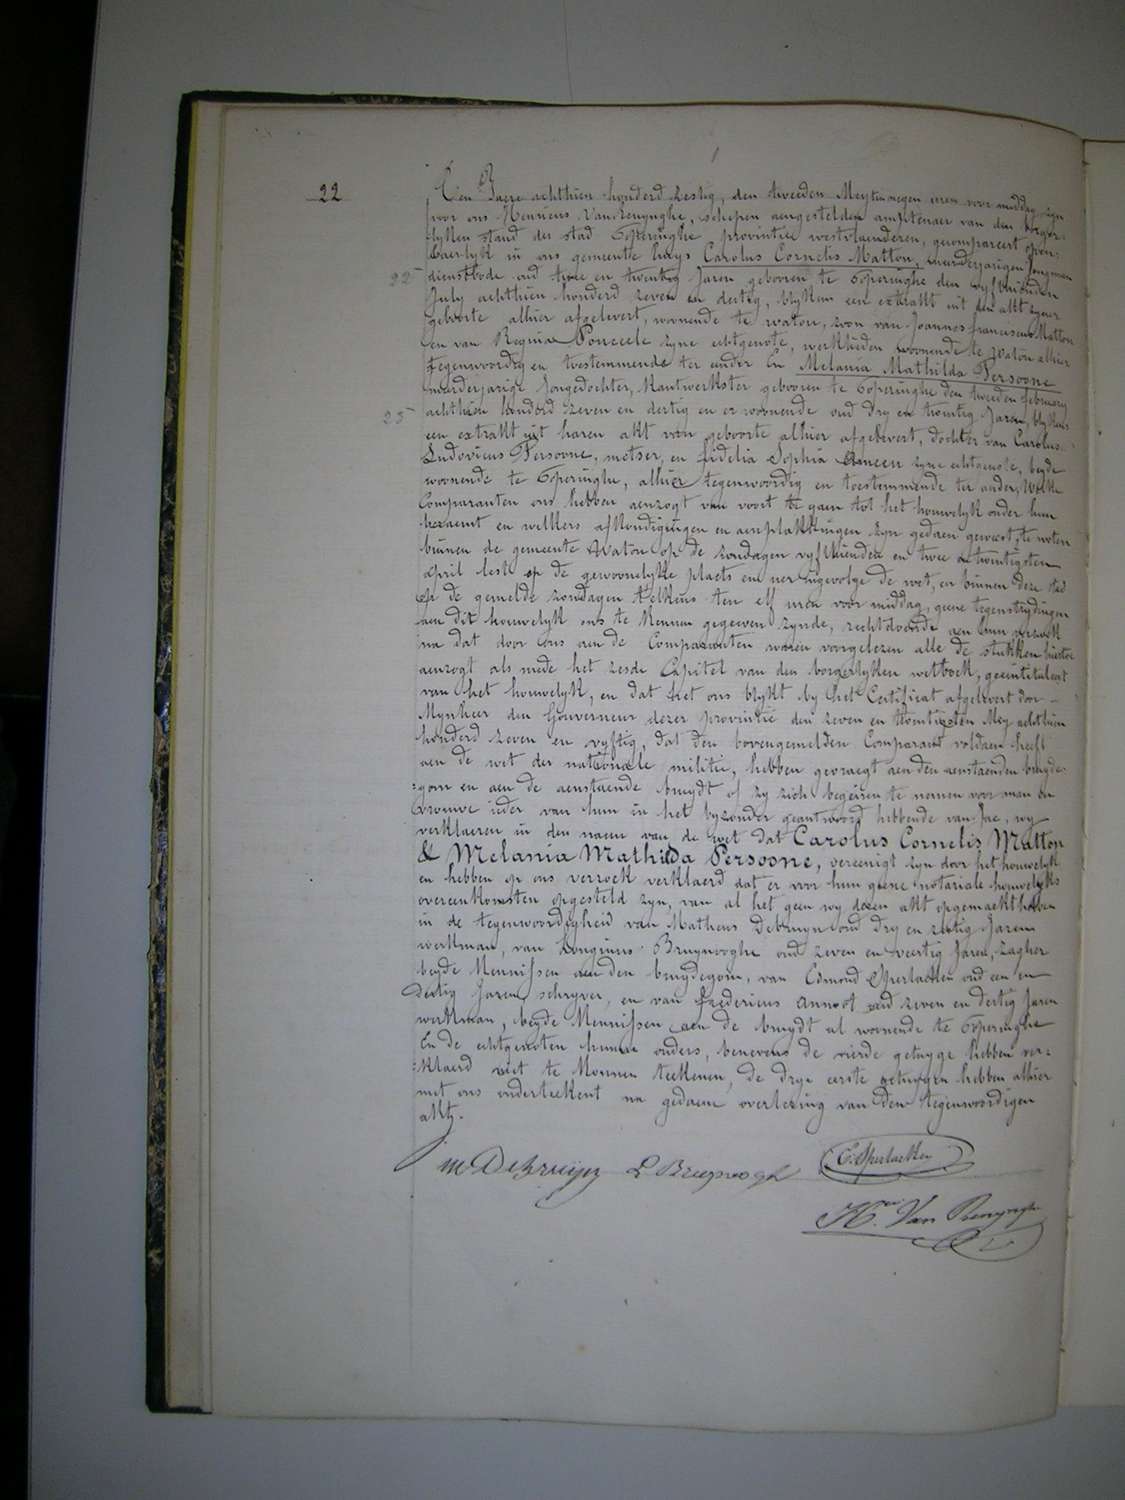 22
Ten Jaere achthien honderd zestig, den tweeden Mey ten negen uren voor middag, zyn
voor ons Henricus Van Renynghe, schepen aengestelden amptenaer van den borger-
lyken stand der stad Poperinghe provintie westvlaenderen, gecompareert open-
baerlyk in ons gemeente huys Carolus Cornelis Matton, meerderjarigen Jongman
22
dienstbode oud twee en twintig Jaren geboren te Poperinghe den vyfthienden
July achthien honderd zeven en dertig, blykens een extrakt uit den akt zyner
geboorte alhier afgelevert, woonende te watou, zoon van Joannes franciscus Matton
en van Regina Ponceele zyne echtgenote, werklieden woonende te Watou alhier
tegenwoordig en toestemmende ter ander En Melania Mathilda Persoone
meerderjarige Jongedochter, Kantwerkster geboren te Poperinghe den tweeden february
23
achthien honderd zeven en dertig en er woonende oud dry en twintig Jaren, blykens
een extrakt uit haren akt van geboorte alhier afgelevert, dochter van Carolus
Ludovicus Persoone, metser, en fidelia Sophia Ameen zyne echtgenote, beyde
woonende te Poperinghe, alhier tegenwoordig en toestemmende ter ander, Welke
Comparanten ons hebben aenzogt van voort te gaen tot het houwelyk onder hun
beraemt en welkers afkondigingen en aenplakkingen zyn gedaen geweest, te weten
binnen de gemeente Watou op de zondagen vyfthienden en twee en twintigsten
april lest op de gewoonelyke plaets en uer ingevolge de wet, en binnen deze stad
op de gemelde zondagen telkens ten elf uren voor middag, geene tegenstrydingen
aen dit houwelyk ons te Kennen gegeven zynde, rechtdoende aen hun verzoek
na dat door ons aen de Comparanten waren voorgelezen alle de stukken hiertoe
aenzogt als mede het zesde Capitel van den borgerlyken wetboek, geeintituleert
van het houwelyk, en dat het ons blykt by het Certificat afgelevert door -
Mynheer den Gouverneur dezer provintie den zeven en twentigsten Mey achthien
honderd zeven en vyftig, dat den bovengemelden Comparant voldaen heeft
aen de wet der nationale militie, hebben gevraegt aen den aenstaenden bruyde-
gom en aen de aenstaende bruydt of zy zich begeiren te nemen voor man en
vrouwe ieder van hun in het byzonder geantwoord hebbende van Jae, wy
verklaeren in den naem van de wet dat Carolus Cornelis Matton
& Melania Mathilda Persoone, vereenigt zyn door het houwelyk
en hebben op ons verzoek verklaerd dat er voor hun geene notariale houwelyks
overeenkomsten opgesteld zyn, van al het geen wy dezen akt opgemaekt hebben
in de tegenwoordigheid van Matheus Debruyn oud dry en zestig Jaren
werkman, van Longinus Bruynooghe oud zeven en veertig Jaren, zagher
beyde Kennissen aen den bruydegom, van Edmond Sperlaeken oud een en
dertig Jaren schryver, en van Fredericus Annoot oud zeven en dertig Jaren
werkman, beyde Kennissen aen de bruydt al woonende te Poperinghe
En de echtgenoten hunne ouders, benevens de vierde getuyge hebben ver-
klaerd niet te Konnen teekenen, de drye eerste getuigen hebben alhier
met ons onderteekent na gedaene overlezing van den tegenwoordigen
akt.
M DeBruijn L Bruynoogh E. Sperlaeken
Hri. Van Renynghe